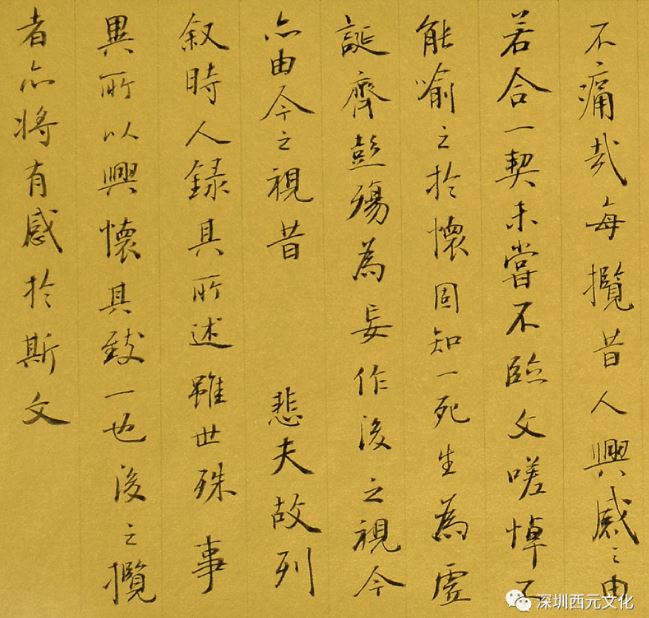 不痛哉每攬昔人興感之由
若合一契未嘗不臨文嗟悼不
能喻之於懷固知一死生為虛
誕齊彭殤為妄作後之視今
亦由今之視昔 悲夫故列
叙時人録其所述雖世殊事
異所以興懷其致一也後之攬
者亦將有感於斯文
深圳西元文化